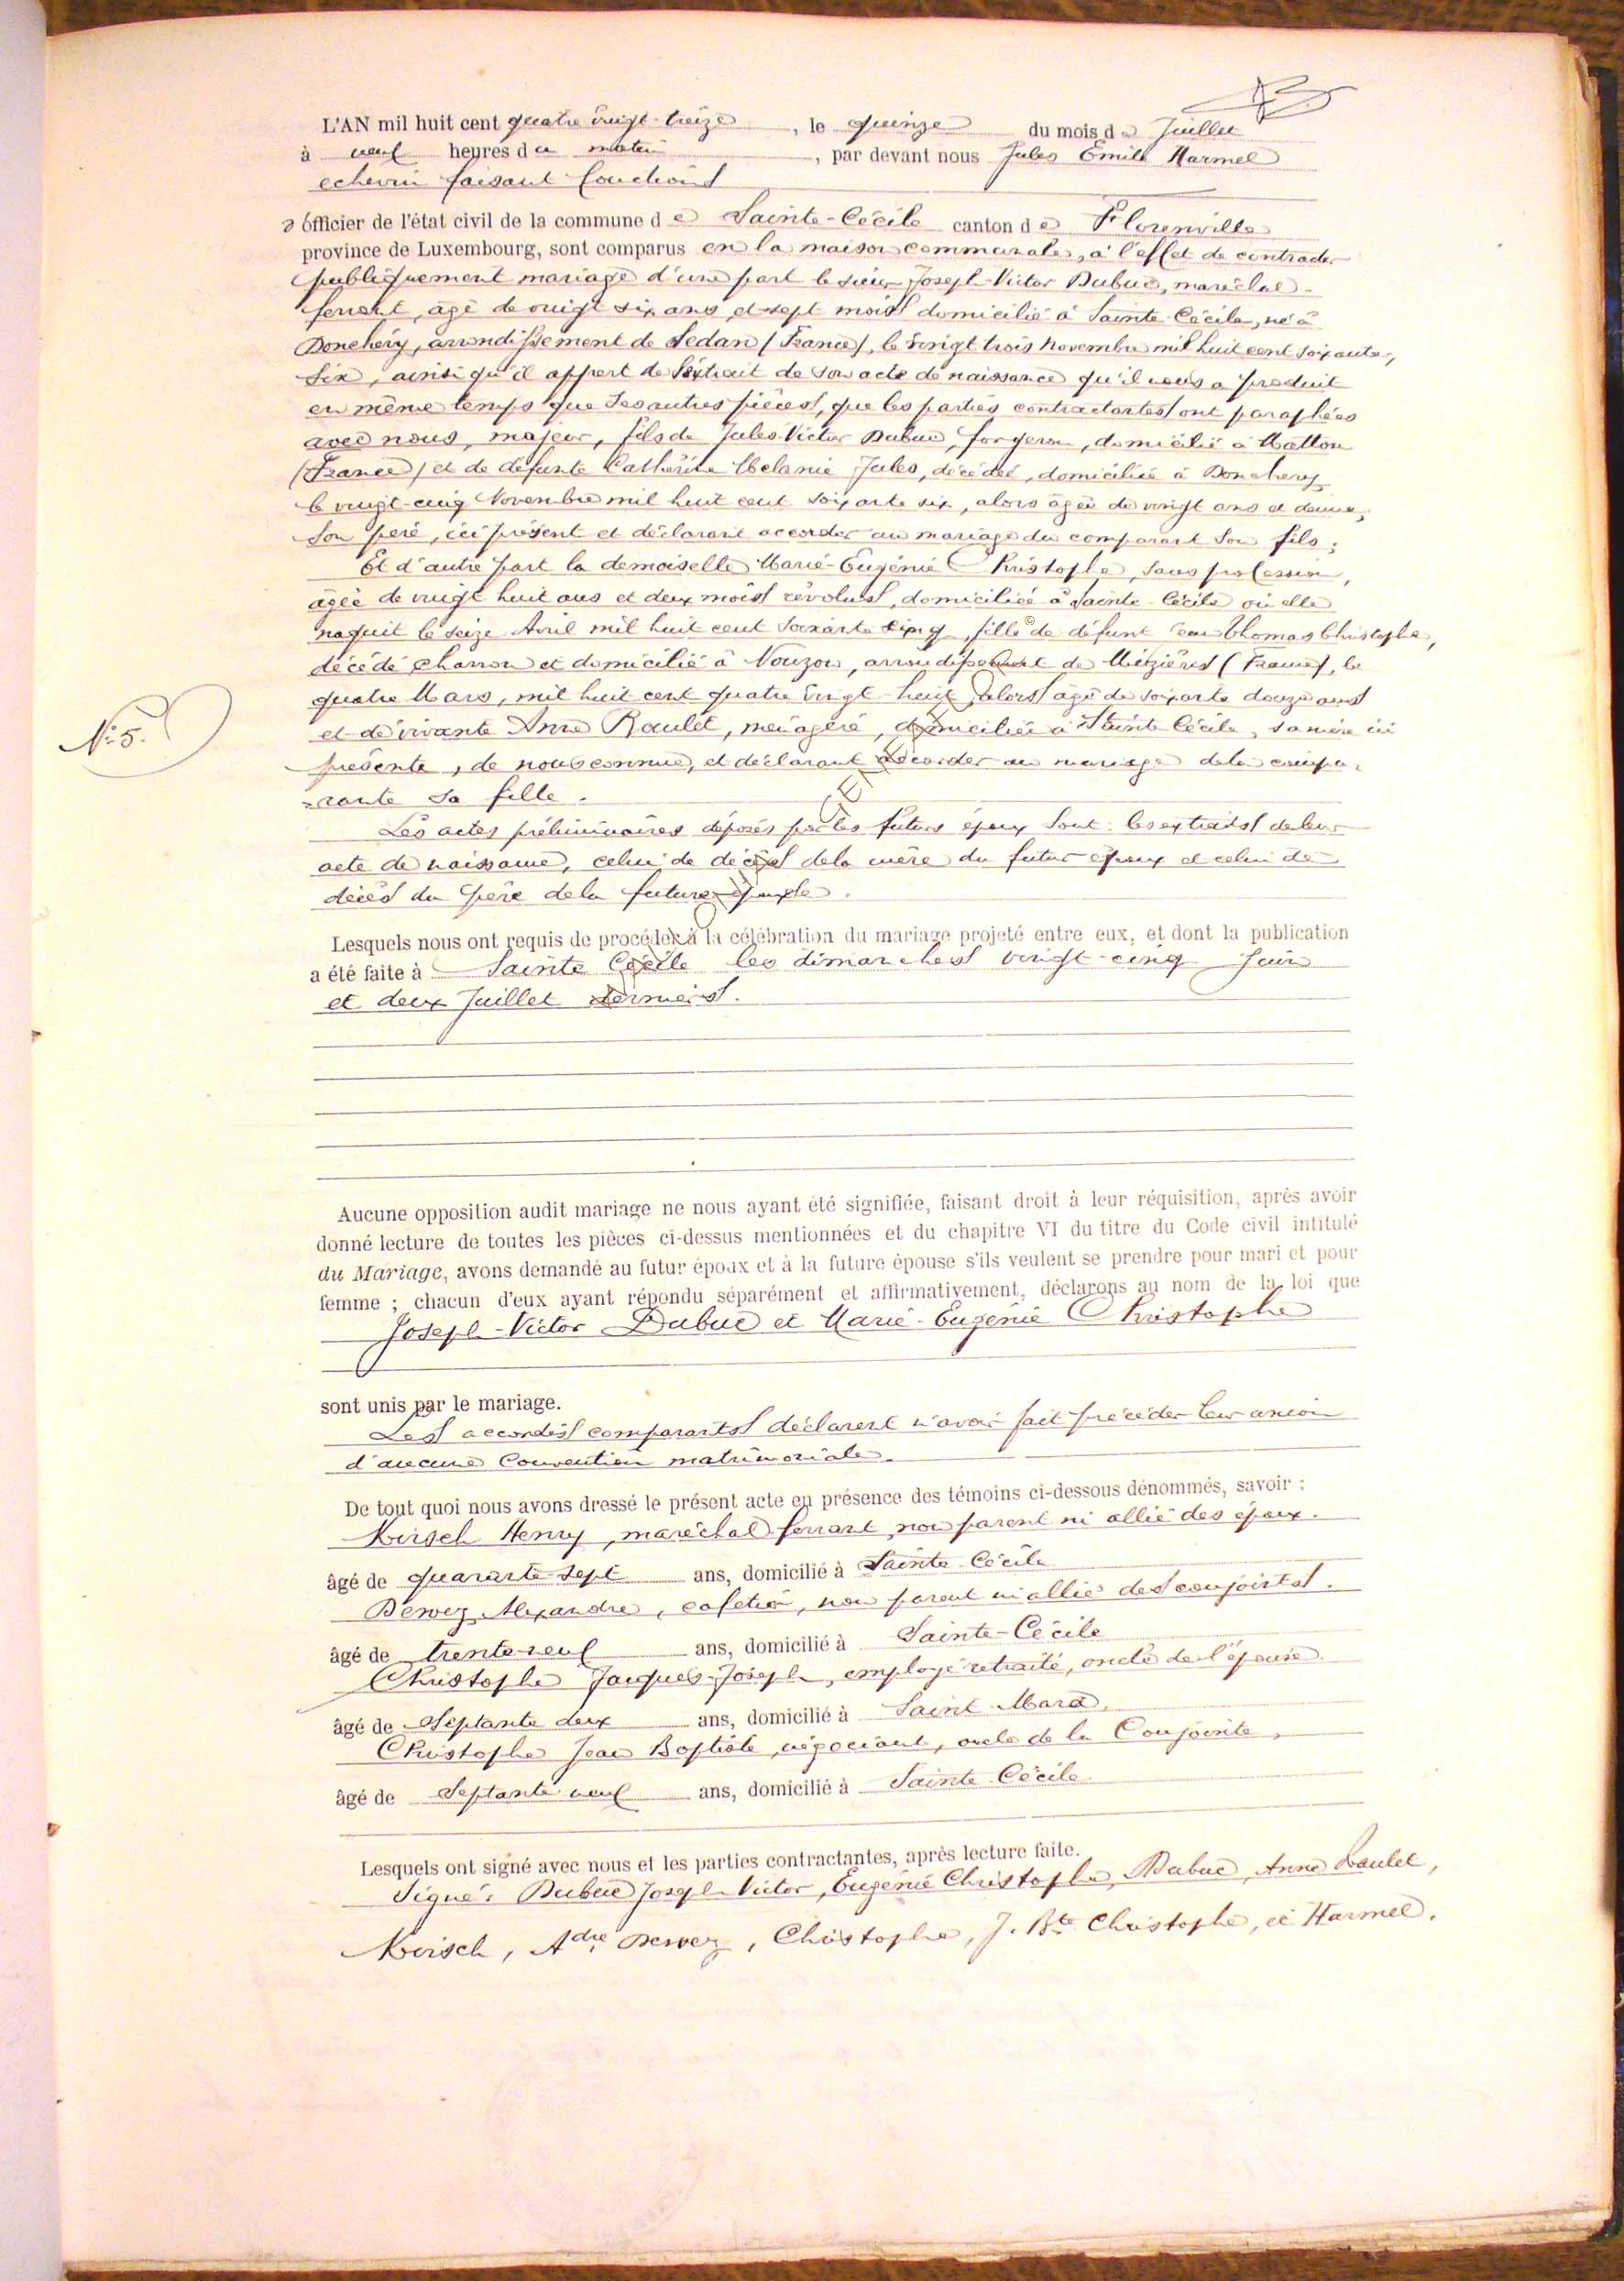 L'AN mil huit cent quatre vingt-treize, le quinze du mois de Juillet
à neuf heures du matin, par devant nous Jules Emile Harmel
echevin faisant fonctions
d'officier de l'état civil de la commune de Sainte-Cécile canton de Florenville
province de Luxembourg, sont comparus en la maison communale, à l'effet de contracter
publiquement mariage d'une part le sieur Joseph-Victor Dubuc, maréchal-
ferrant, âgé de vingt six ans et sept mois domicilié à Sainte-Cécile, né à
Donchéry, arrondissement de Sedan (France), le vingt trois Novembre mil huit cent soixante,
six, ainsi qu'il appert de l'extrait de son acte de naissance qu'il nous a produit
en même temps que ses autres pièces, que les parties contractantes ont paraphées
avec nous, majeur, fils de Jules-Victor Dubuc, forgeron, domicilié à Matton
(France) et de défunte Cathérine Mélanie Jules, décédée, domiciliée à Donchery
le vingt-cinq Novembre mil huit cent soixante six, alors âgée de vingt ans et demie,
son père, ici présent et déclarant accorder au mariage du comparant son fils;
Et d'autre part la demoiselle Marie-Eugénie Christophe, sans profession,
âgée de vingt huit ans et deux mois révolus, domiciliée à Sainte-Cécile où elle
naquit le seize Avril mil huit cent soixante cinq, fille de défunt Jean Thomas Christophe,
décédé charron et domicilié à Nouzon, arrondissement de Mézières (France), le
quatre Mars, mil huit cent quatre vingt-huit, alors âgé de soixante douze ans
N° 5.
et de vivante Anne Raulet, ménagère, domiciliée à Sainte Cécile, sa mère ici
présente, de nous connue, et déclarant accorder au mariage de la compa-
=rante sa fille.
Les actes préliminaires déposés par les futurs époux sont: les extraits de leur
acte de naissance, celui de décès de la mère du futur époux et celui de
décès du père de la future épouse.
Lesquels nous ont requis de procéder à la célébration du mariage projeté entre eux, et dont la publication
a été faite à Sainte Cécile les dimanches vingt-cinq Juin
et deux Juillet derniers.
Aucune opposition audit mariage ne nous ayant été signifiée, faisant droit à leur réquisition, après avoir
donné lecture de toutes les pièces ci-dessus mentionnées et du chapitre VI du titre du Code civil intitulé
du Mariage, avons demandé au futur époux et à la future épouse s'ils veulent se prendre pour mari et pour
femme ; chacun d'eux ayant répondu séparément et affirmativement, déclarons au nom de la loi que
Joseph-Victor Dubuc et Marie-Eugénie Christophe
sont unis par le mariage.
Les accordés comparants déclarent n'avoir fait précéder leur union
d'aucune Convention matrimoniale.
De tout quoi nous avons dressé le présent acte en présence des témoins ci-dessous dénommés, savoir :
Kirsch Henry, maréchal ferrant, non parent ni allié des époux.
âgé de quarante-sept ans, domicilié à Sainte-Cécile
Dervez Alexandre, cafetier, non parent ni allié des conjoints.
âgé de trente-neuf ans, domicilié à Sainte-Cécile
Christophe Jacques-Joseph, employé retraité, oncle de l'épouse.
âgé de septante deux ans, domicilié à Saint-Mard,
Christophe Jean Baptiste, négociant, oncle de la Conjointe,
âgé de Septante neuf ans, domicilié à Sainte-Cécile
Lesquels ont signé avec nous et les parties contractantes, après lecture faite.
Signé: Dubuc Joseph Victor, Eugénie Christophe, Dubuc, Anne Raulet,
Kirsch, Adre Dervez, Christophe, J. Bte Christophe, et Harmel.